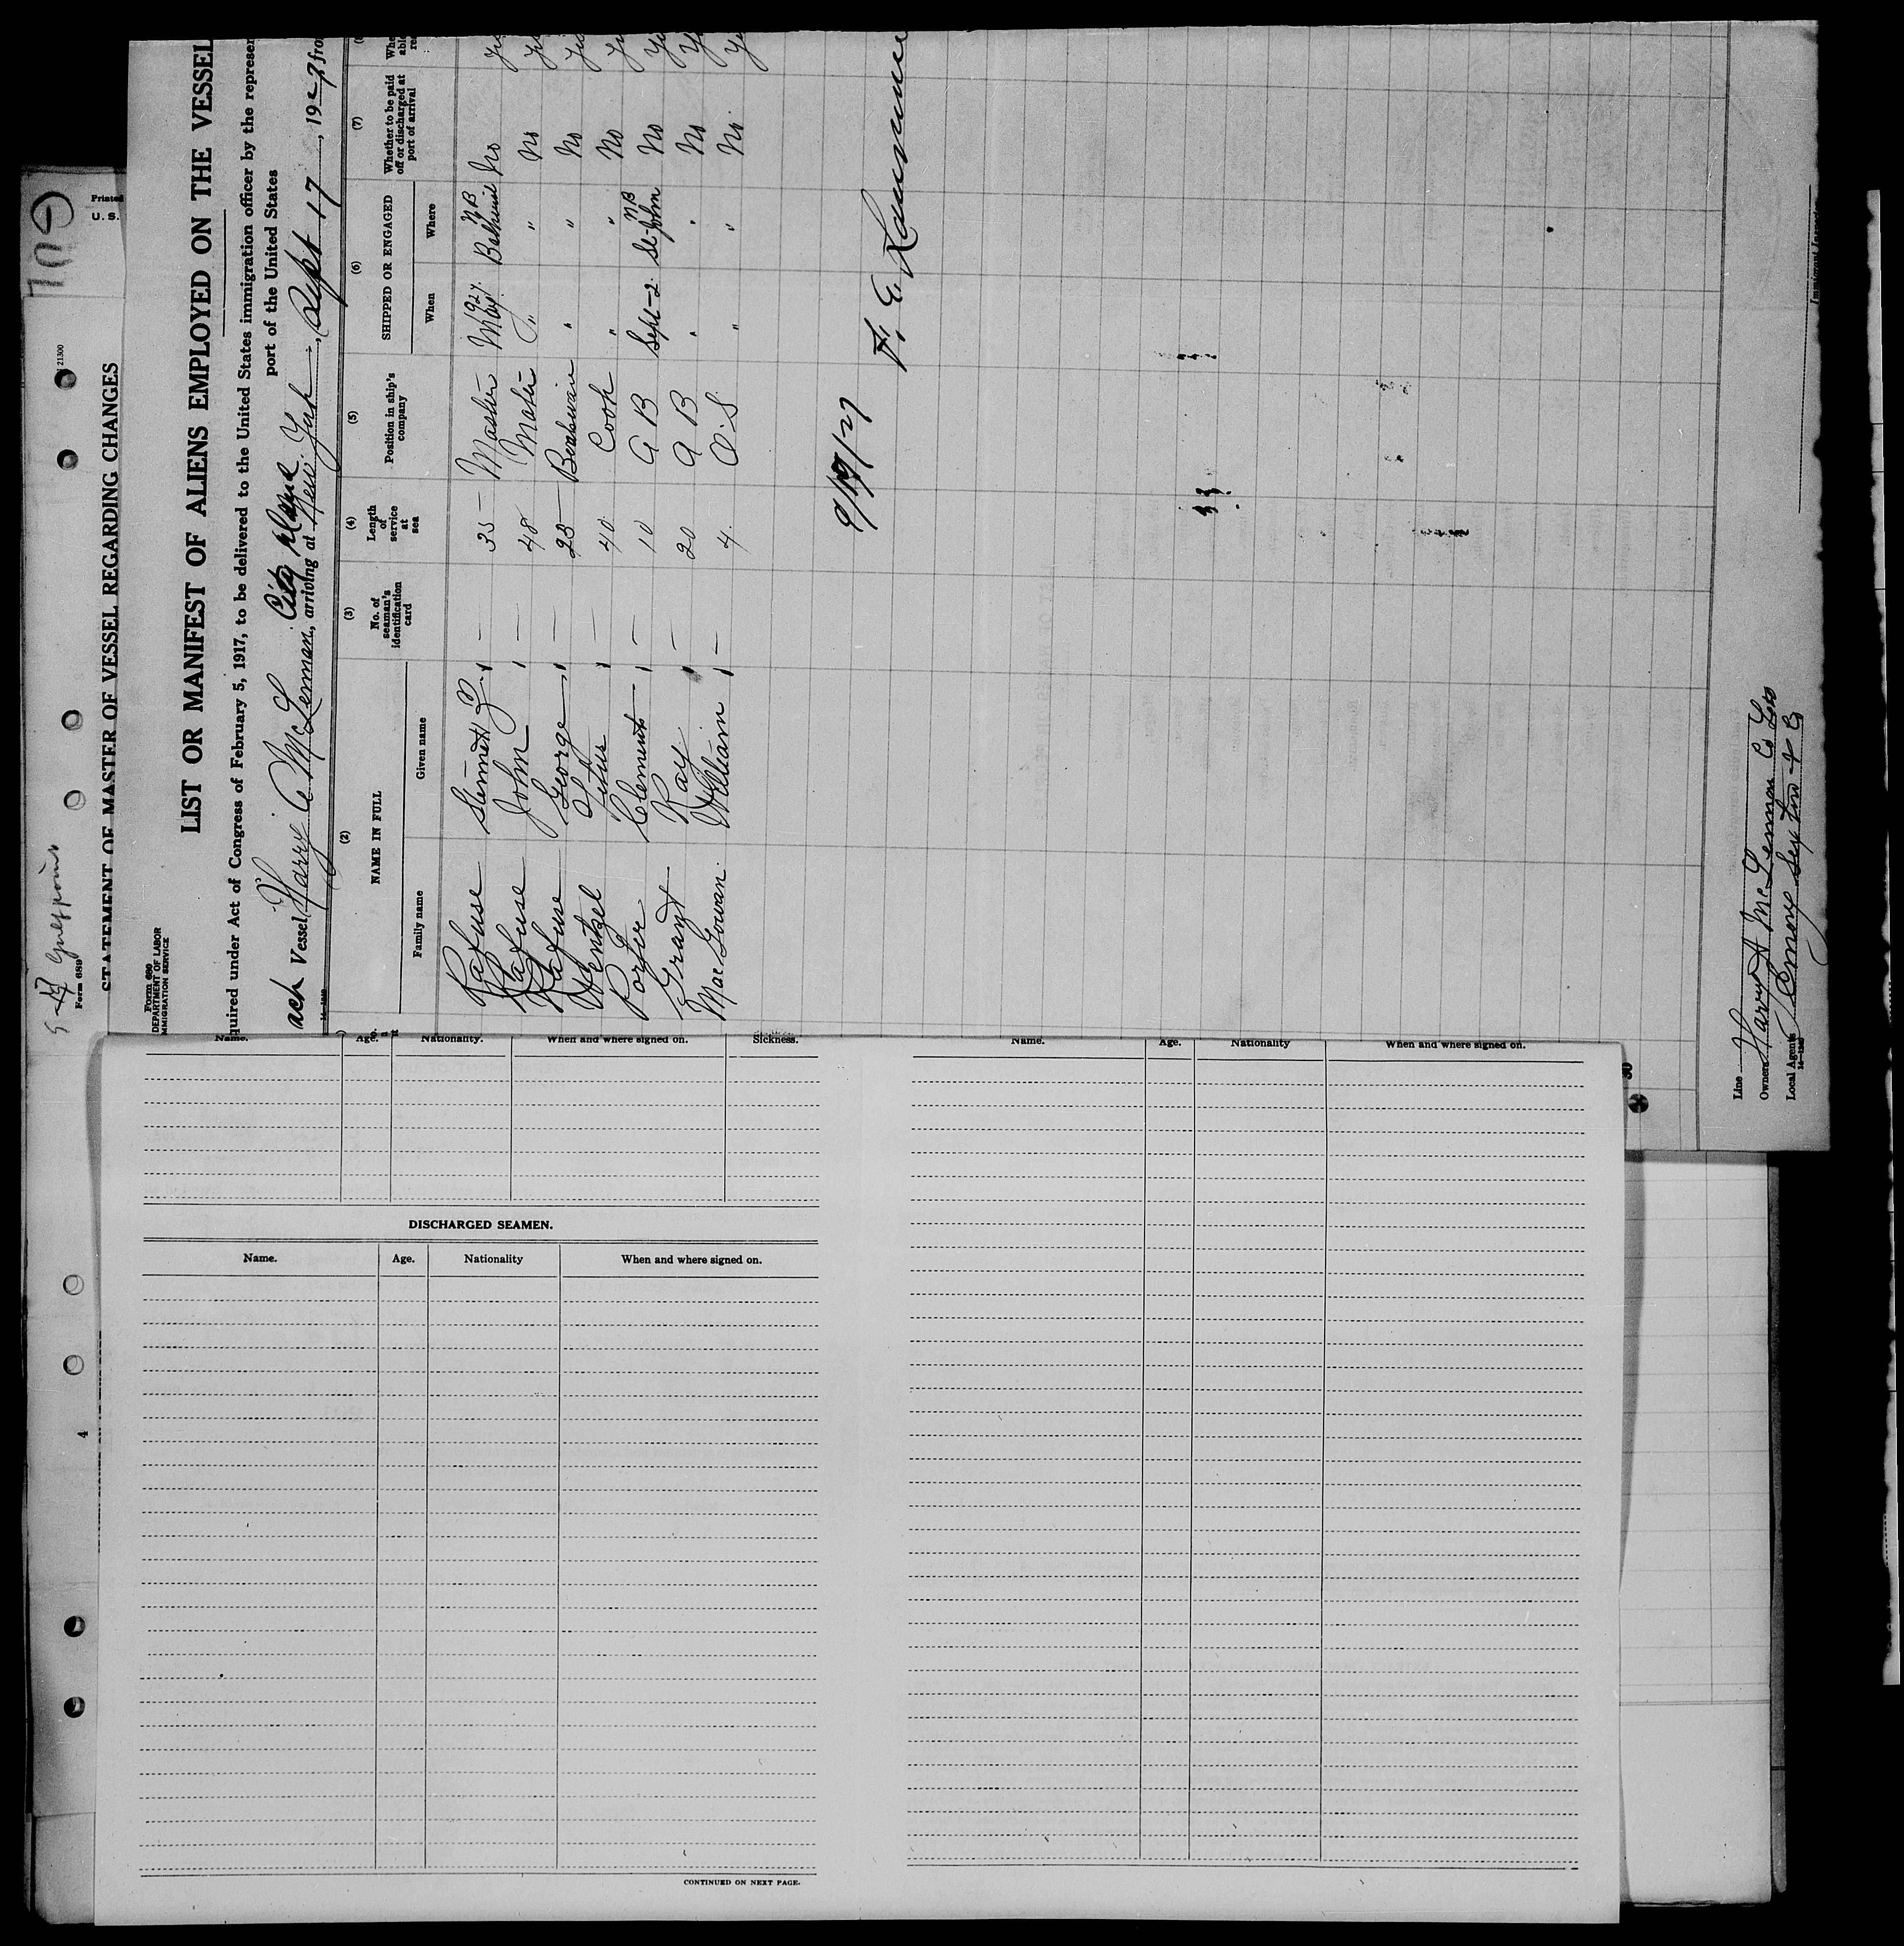 Printed
U. S.
21300
Form 689
STATEMENT OF MASTER OF VESSEL REGARDING CHANGES
4
Form 680
DEPARTMENT OF LABOR
IMMIGRATION SERVICE
LIST OR MANIFEST OF ALIENS EMPLOYED ON THE VESSEL
quired under Act of Congress of February 5, 1917, to be delivered to the United States immigration officer by the represen
port of the United States
City Island
ach Vessel Harry A McLennan, arriving at New York, Sept 17, 1927 fro
(2) (3) (4) (5) (6) (7)
NAME IN FULL No. of seaman's identification card Length of service at sea Position in ship's company SHIPPED OR ENGAGED Whether to be paid off or discharged at port of arrival
Family name Given name When Where
Rafuse 35 Master May 1927 NB No
Rafuse John — 48 Mate " " No
Rafuse George — 25 Boatswain " " No
Wentzel Titus — 40 Cook " " No
Porter Clement — 10 A B Sept-2 St-John NB No
Grant Ray — 20 A B " " No
MacGowan William — 4 O.S " " No
9/19/27
F. E.
30
Line
Owners Harry A McLennan Co Ltd
Local Agents
Immigrant Inspector
Name. Age. Nationality. When and where signed on. Sickness.
DISCHARGED SEAMEN.
Name. Age. Nationality When and where signed on.
CONTINUED ON NEXT PAGE.
Name. Age. Nationality When and where signed on.